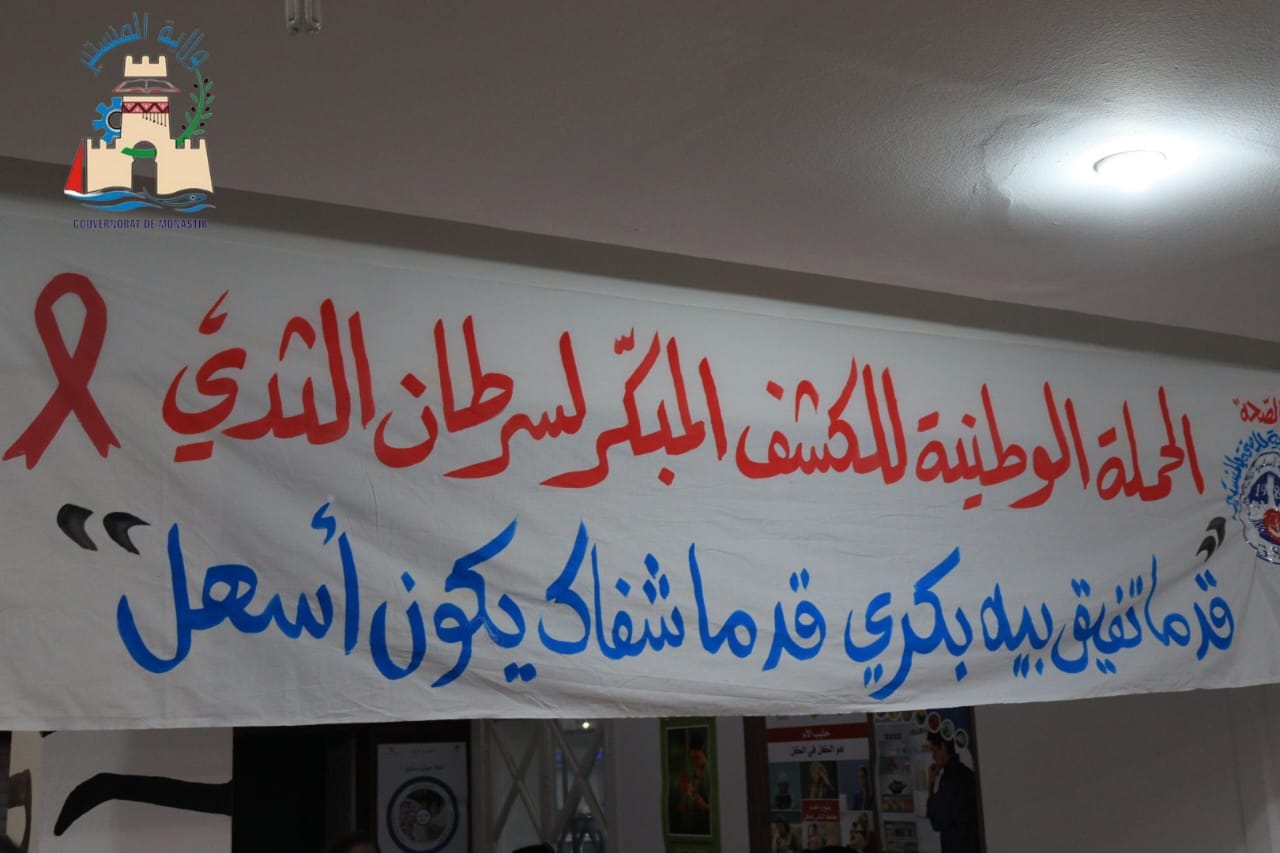 ولاية المنستير
GOUVERNORAT DE MONASTIR
الحملة الوطنية للكشف المبكّر لسرطان الثدي
"قدّ ما تفيق بيه بكري قد ما شفاك يكون أسهل"
حليب الأم
هو الكل في الكل